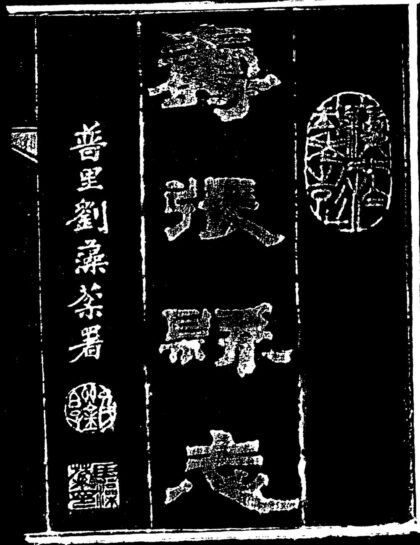 壽張縣志
普里劉藻棻署